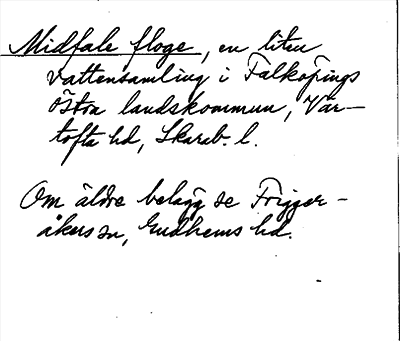 Midfale floge, en liten
vattensamling i Falköpings
östra landskommun, Var-
tofta hd, Skarab. l.
Om äldre belägg se Frigger-
åkers sn, Gudhems hd.